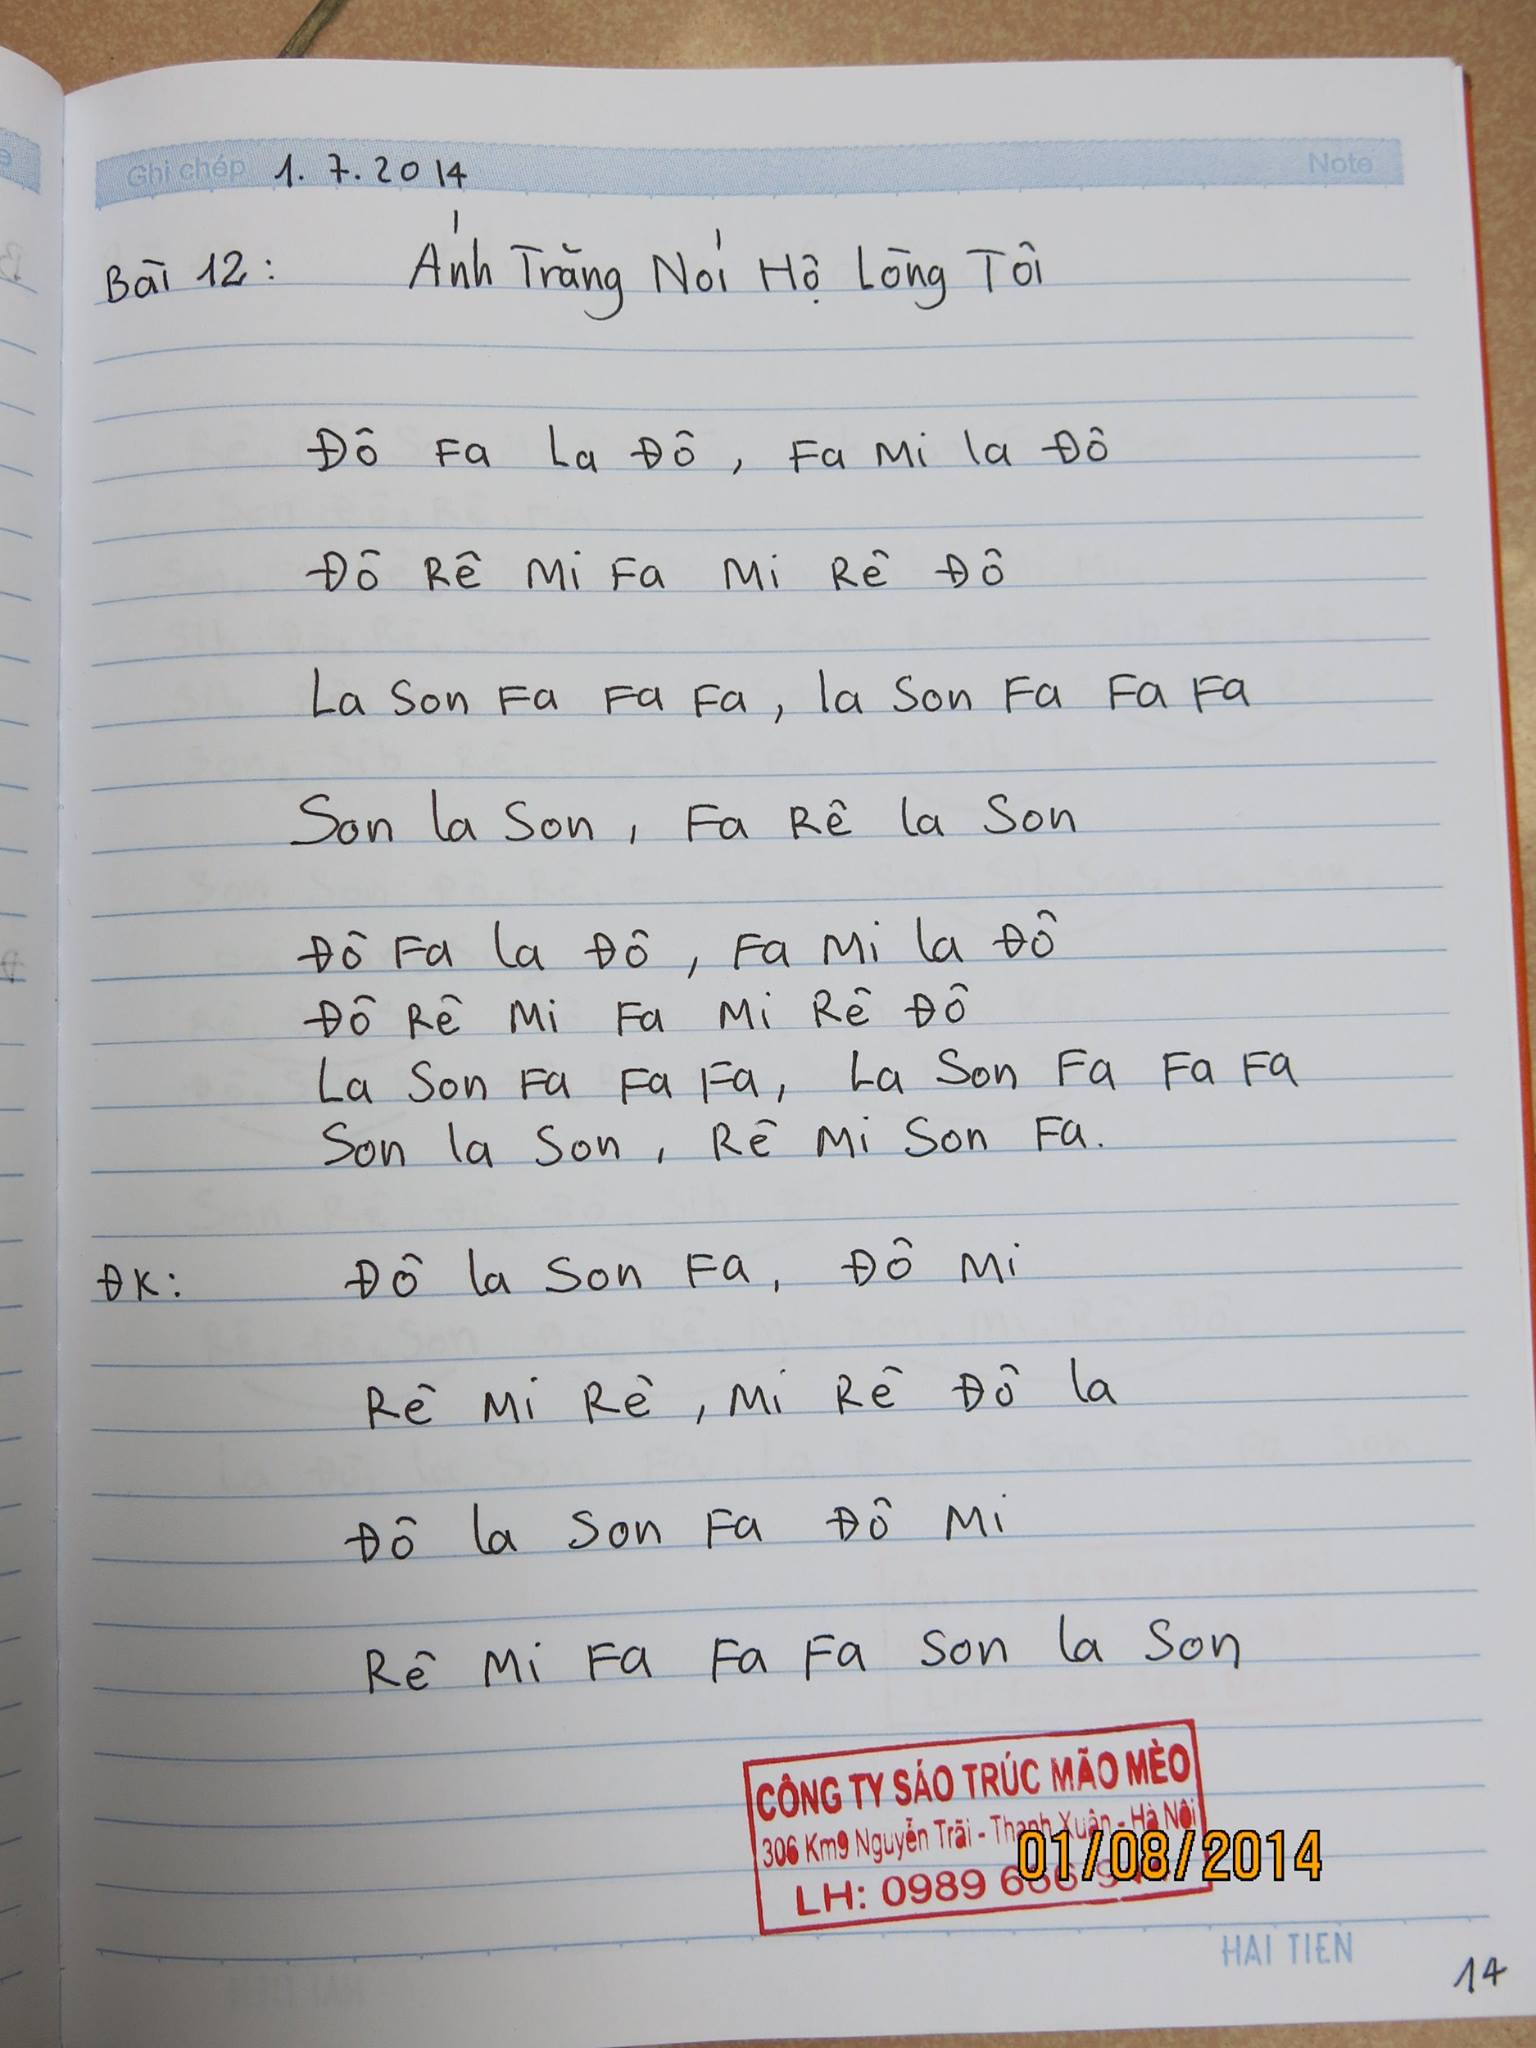 Ghi chép 1.7.2014 Note
Bài 12: Ánh Trăng Nói Hộ Lòng Tôi
Đô Fa La Đô, Fa Mi la Đô
Đô Rê Mi Fa Mi Rê Đô
La Son Fa Fa Fa, la Son Fa Fa Fa
Son la Son, Fa Rê la Son
Đô Fa la Đô, Fa Mi la Đô
Đô Rê Mi Fa Mi Rê Đô
La Son Fa Fa Fa, La Son Fa Fa Fa
Son la Son, Rê Mi Son Fa.
ĐK: Đô la Son Fa, Đô Mi
Rê Mi Rê, Mi Rê Đô la
Đô la Son Fa Đô Mi
Rê Mi Fa Fa Fa Son la Son
CÔNG TY SÁO TRÚC MÃO MÈO
306 Km9 Nguyễn Trãi - Thanh Xuân - Hà Nội
LH: 0989
01/08/2014
HAI TIEN
14